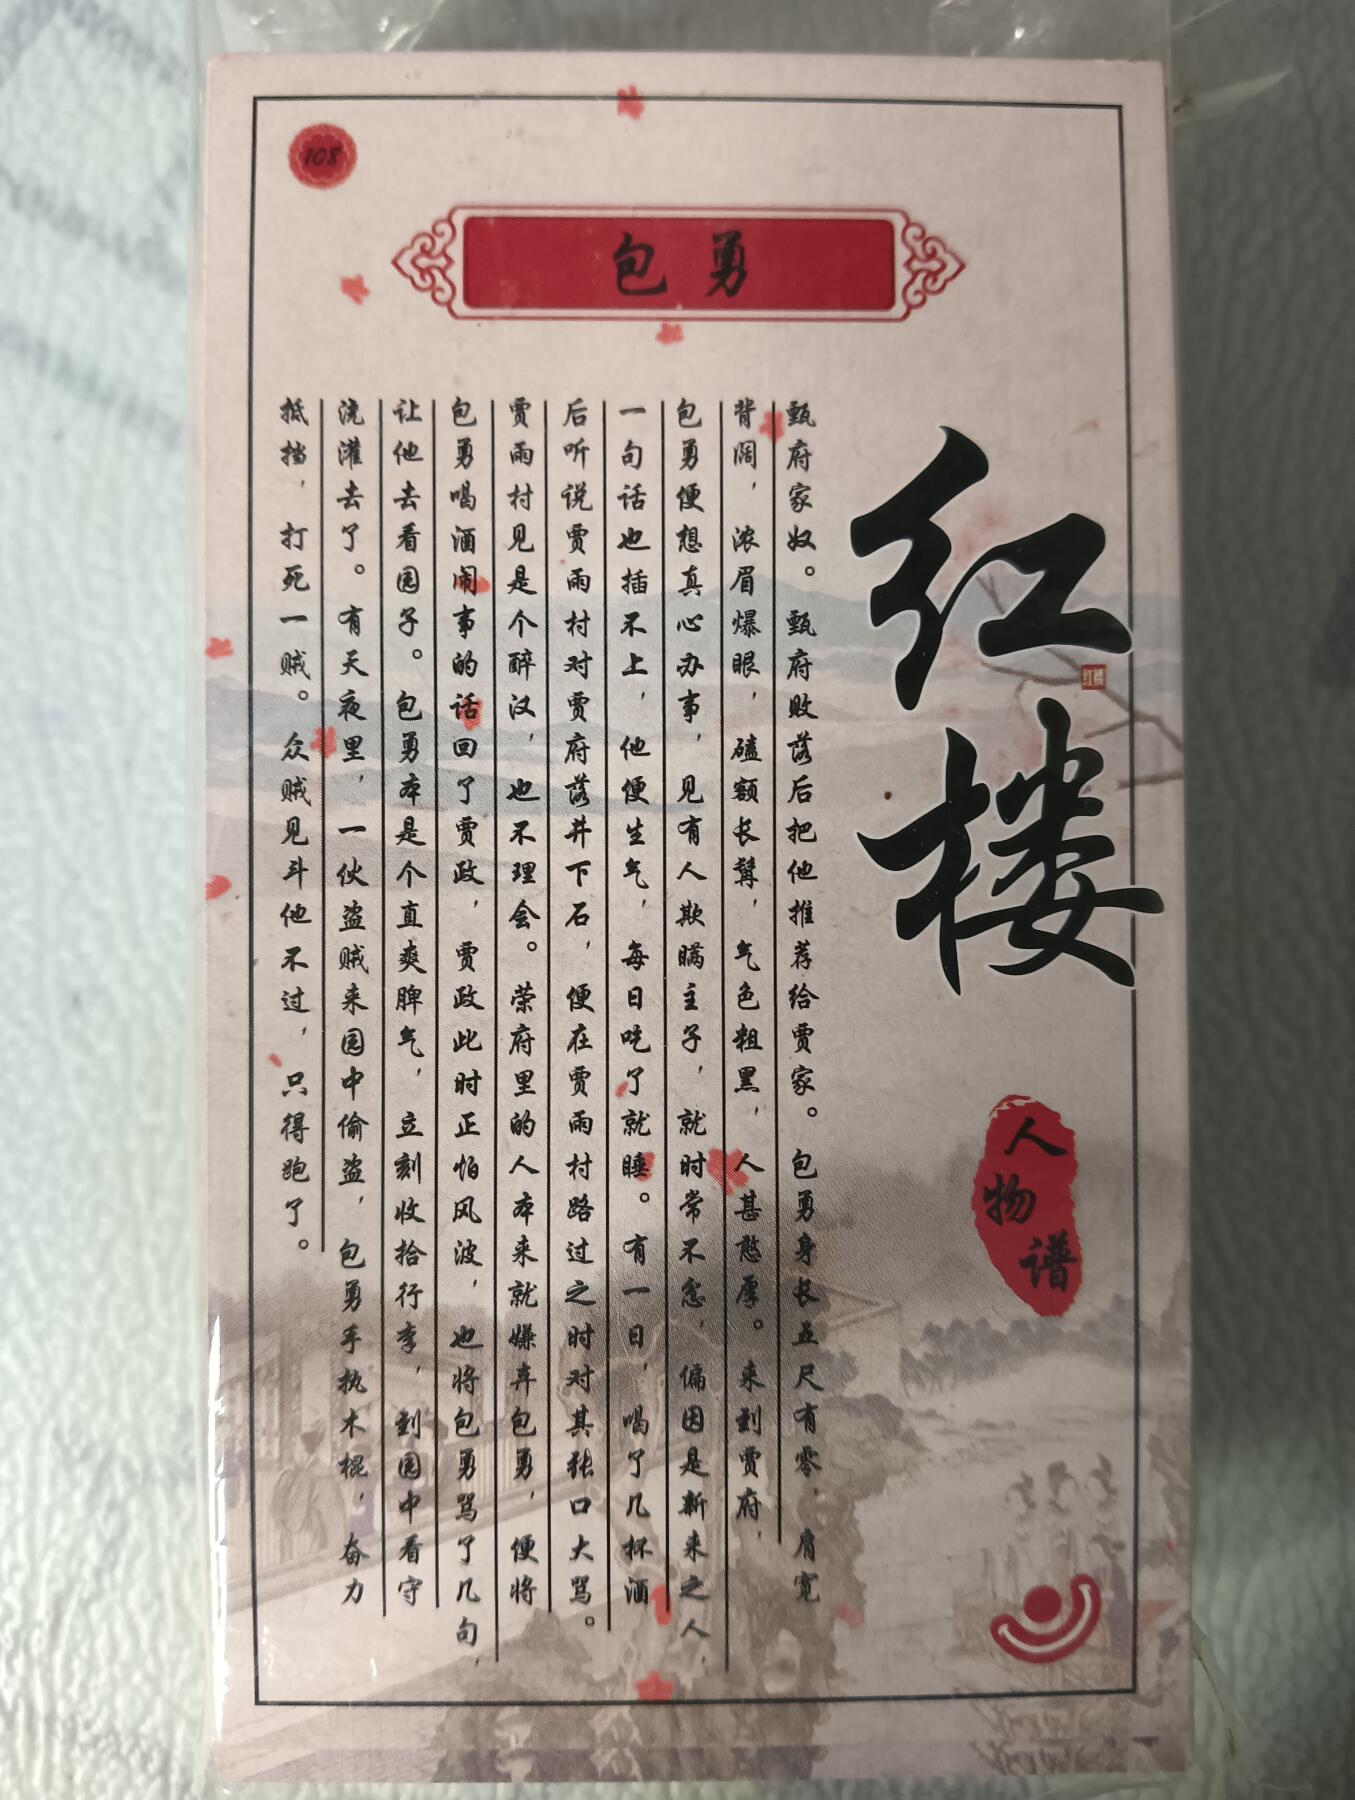 108
包勇
红楼
红楼
人物谱
甄府家奴。甄府败落后把他推荐给贾家。包勇身长五尺有零，肩宽
背阔，浓眉爆眼，磕额长髯，气色粗黑，人甚憨厚。来到贾府，
包勇便想真心办事，见有人欺瞒主子，就时常不忿，偏因是新来之人，
一句话也插不上，他便生气，每日吃了就睡。有一日，喝了几杯酒
后听说贾雨村对贾府落井下石，便在贾雨村路过之时对其张口大骂。
贾雨村见是个醉汉，也不理会。荣府里的人本来就嫌弃包勇，便将
包勇喝酒闹事的话回了贾政，贾政此时正怕风波，也将包勇骂了几句，
让他去看园子。包勇本是个直爽脾气，立刻收拾行李，到园中看守
浇灌去了。有天夜里，一伙盗贼来园中偷盗，包勇手执木棍，奋力
抵挡，打死一贼。众贼见斗他不过，只得跑了。